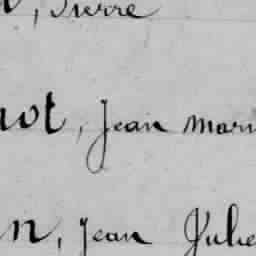 , Pierre
not, Jean Mari
n, Jean Julie